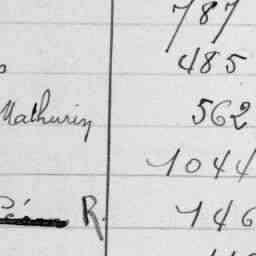 787
485
Mathurin 562
1044
R. 146